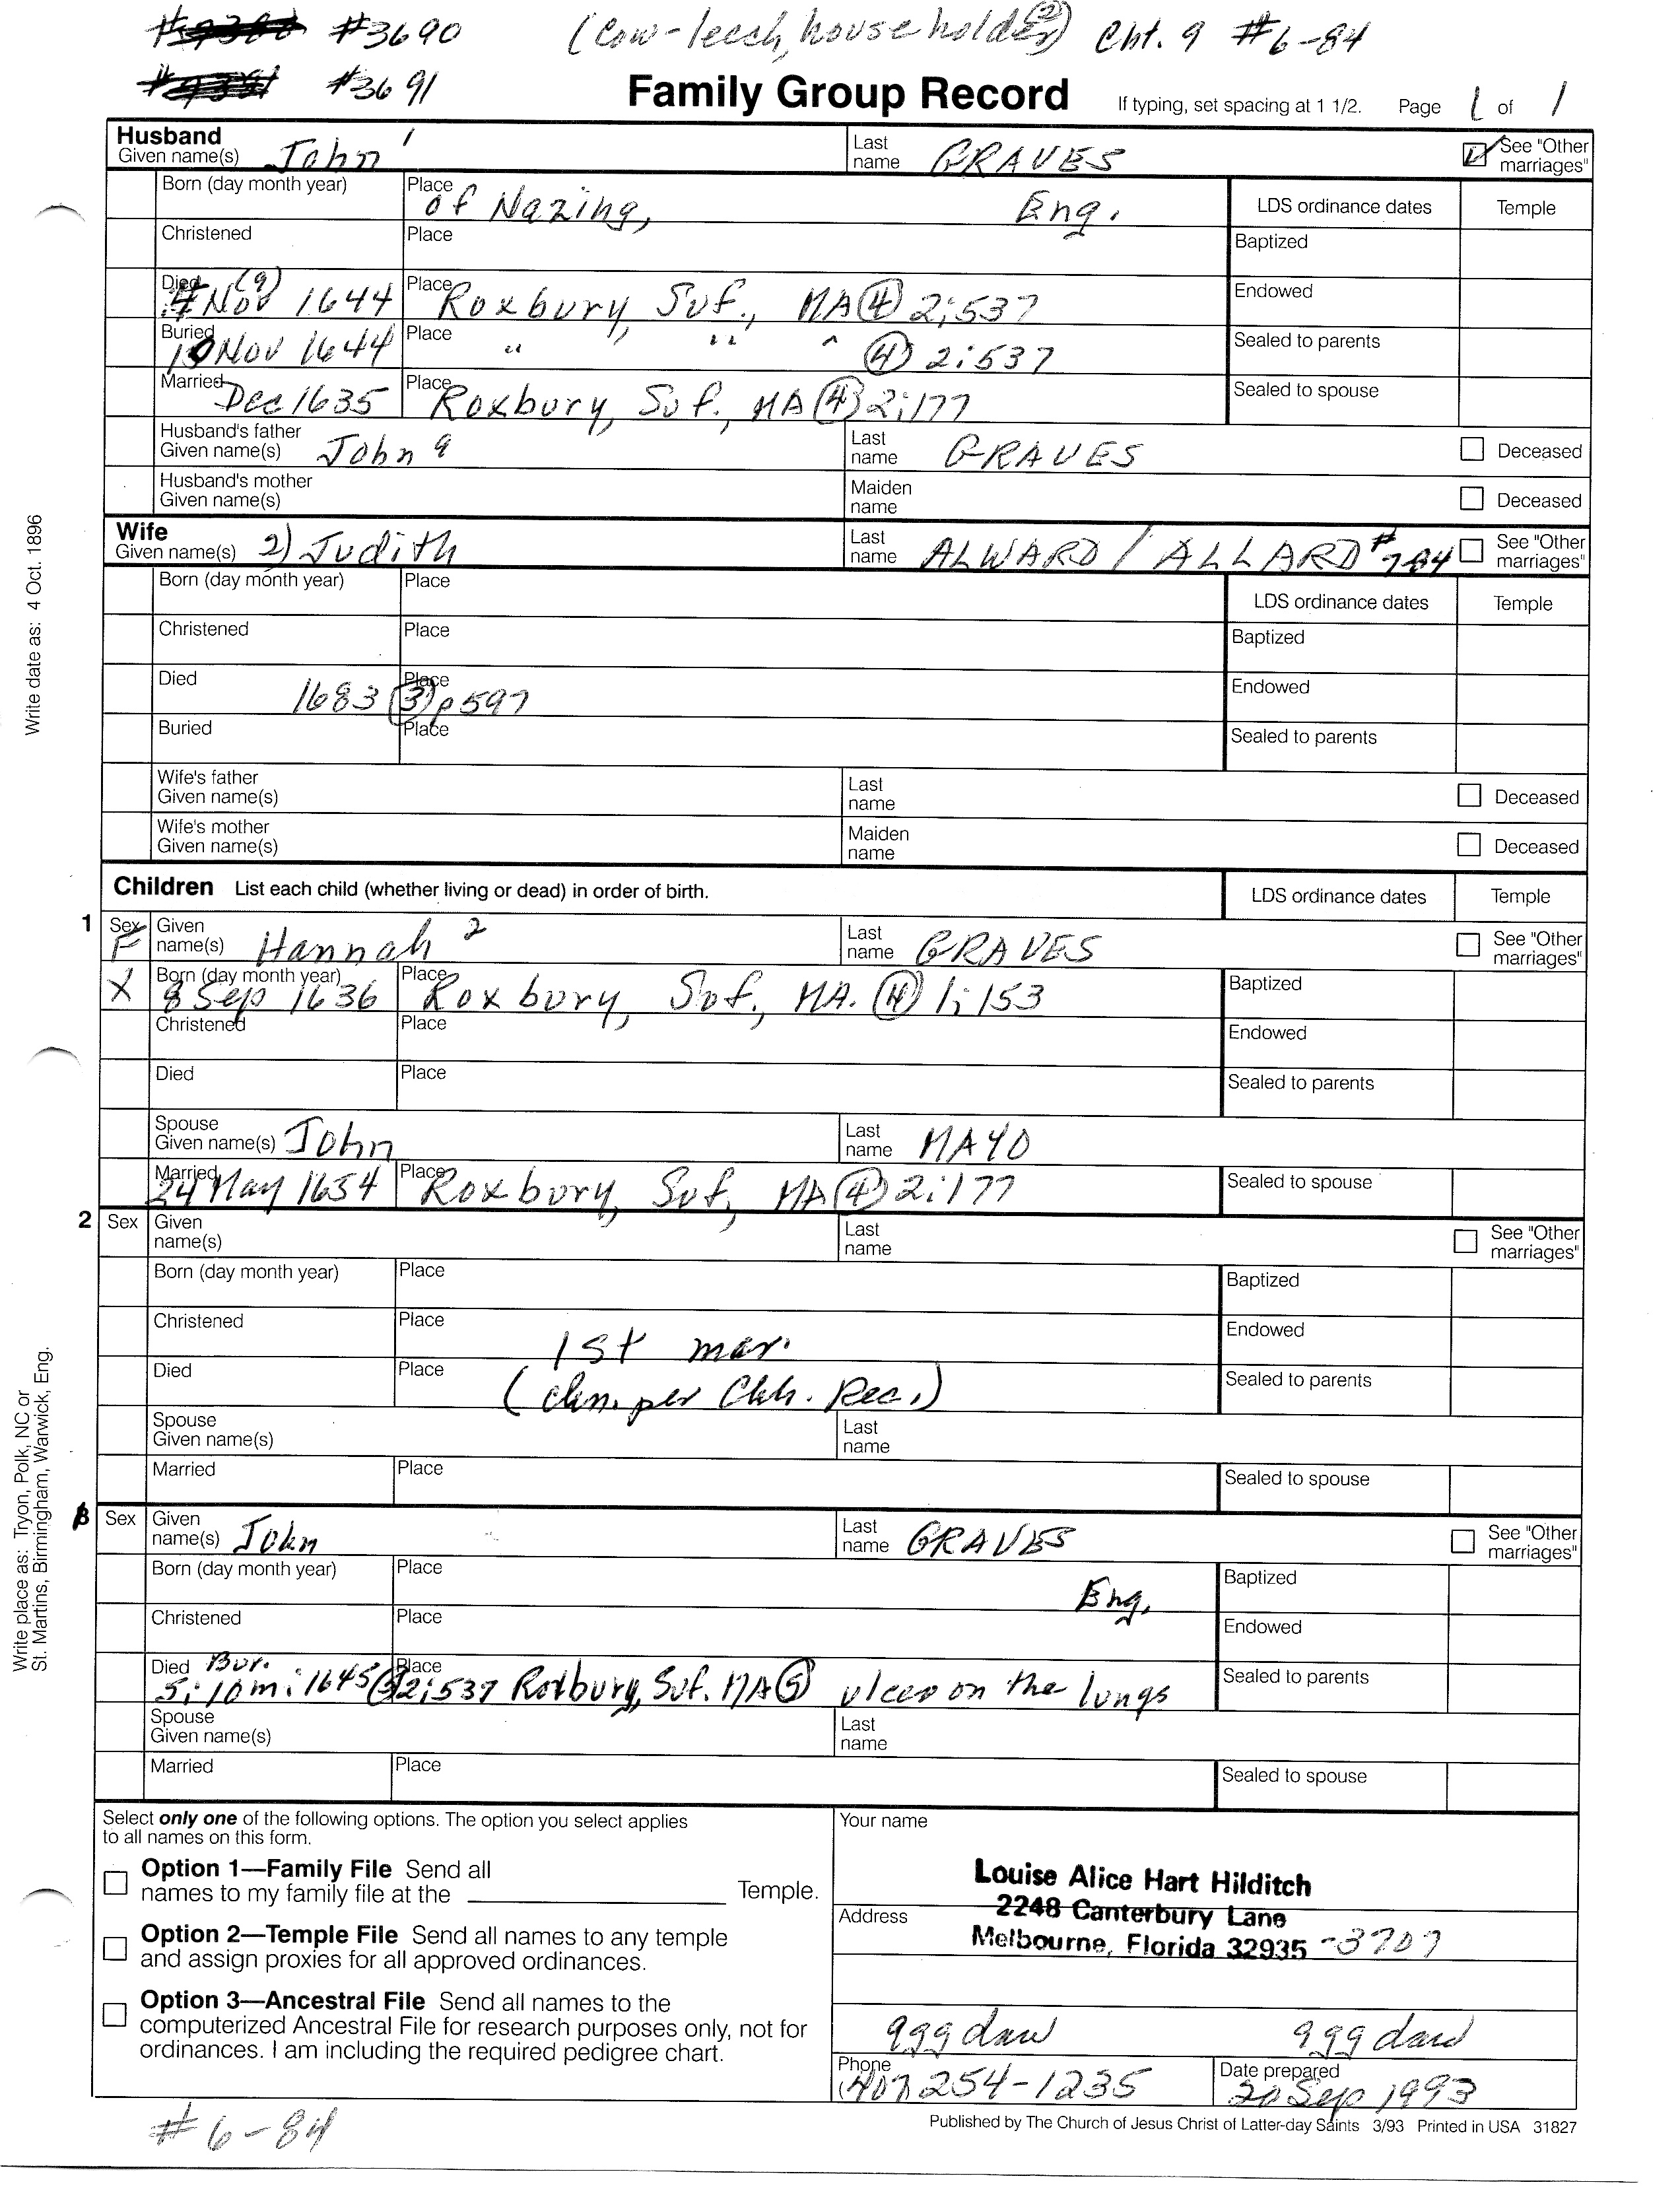 #3690 (cow-leech, householder) (2) Cht. 9 #6-84
#3691 Family Group Record If typing, set spacing at 1 1/2. Page 1 of 1
Husband
Given name(s) John 1 Last name GRAVES See "Other marriages"
Born (day month year) Place of Nazing, Eng. LDS ordinance dates Temple
Christened Place Baptized
Died 4 Nov (9) 1644 Place Roxbury, Suf., MA (4) 2:537 Endowed
Buried 10 Nov 1644 Place " " " (4) 2:537 Sealed to parents
Married Dec 1635 Place Roxbury, Suf., MA (4) 2:177 Sealed to spouse
Husband's father
Given name(s) John a Last name GRAVES Deceased
Husband's mother
Given name(s) Maiden name Deceased
Wife
Given name(s) 2) Judith Last name ALWARD / ALLARD #784 See "Other marriages"
Born (day month year) Place LDS ordinance dates Temple
Christened Place Baptized
Died 1683 (3) p597 Place Endowed
Buried Place Sealed to parents
Wife's father
Given name(s) Last name Deceased
Wife's mother
Given name(s) Maiden name Deceased
Children List each child (whether living or dead) in order of birth. LDS ordinance dates Temple
1 Sex F Given name(s) Hannah 2 Last name GRAVES See "Other marriages"
X Born (day month year) 8 Sep 1636 Place Roxbury, Suf., MA. (4) 1:153 Baptized
Christened Place Endowed
Died Place Sealed to parents
Spouse
Given name(s) John Last name MAYO
Married 24 May 1654 Place Roxbury, Suf, MA (4) 2:177 Sealed to spouse
2 Sex Given name(s) Last name See "Other marriages"
Born (day month year) Place Baptized
Christened Place 1st mar. Endowed
Died Place (chn. per Chh. Rec.) Sealed to parents
Spouse
Given name(s) Last name
Married Place Sealed to spouse
Sex Given name(s) John Last name GRAVES See "Other marriages"
Born (day month year) Place Eng. Baptized
Christened Place Endowed
Died Bur. 5: 10m: 1645 2:537 Place Roxbury, Suf. MA (5) ulcer on the lungs Sealed to parents
Spouse
Given name(s) Last name
Married Place Sealed to spouse
Select only one of the following options. The option you select applies
to all names on this form.
Option 1—Family File Send all
names to my family file at the Temple.
Option 2—Temple File Send all names to any temple
and assign proxies for all approved ordinances.
Option 3—Ancestral File Send all names to the
computerized Ancestral File for research purposes only, not for
ordinances. I am including the required pedigree chart.
Your name
Louise Alice Hart Hilditch
Address
2248 Canterbury Lane
Melbourne, Florida 32935 -3707
ggg dau ggg dau
Phone (407 254-1235 Date prepared 20 Sep 1993
Published by The Church of Jesus Christ of Latter-day Saints 3/93 Printed in USA 31827
#6-84
Write date as: 4 Oct. 1896
Write place as: Tryon, Polk, NC or
St. Martins, Birmingham, Warwick, Eng.